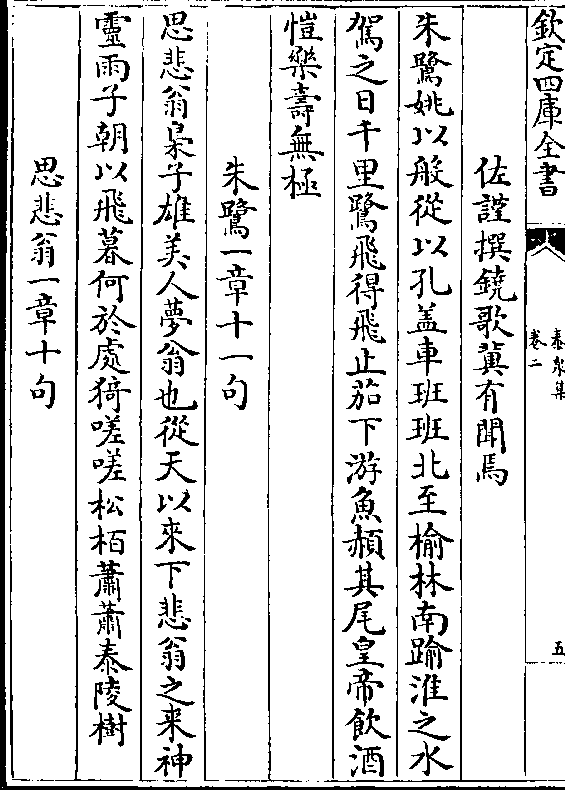 欽定四庫全書
泰泉集
卷二
五
佐謹撰鐃歌冀有聞焉
朱鷺姚以般從以孔盖車班班北至榆林南踰淮之水
駕之日千里鷺飛得飛止茄下游魚頳其尾皇帝飲酒
愷樂壽無極
朱鷺一章十一句
思悲翁梟子雄美人夢翁也從天以來下悲翁之来神
靈雨子朝以飛暮何於處猗嗟嗟松栢蕭蕭泰陵樹
思悲翁一章十句